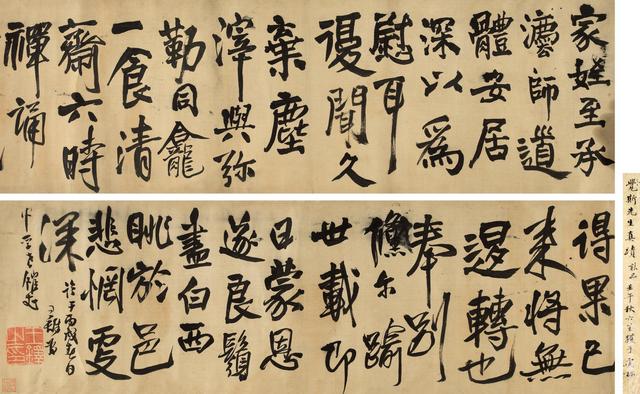 家姪至承
灋師道
體安居
深以為
慰耳
復聞久
棄塵
滓與弥
勒同龕
一食清
齋六時
禪誦
得果已
来將無
退轉也
奉別
倏尔踰
世載即
日蒙恩
遂良鬚
盡白西
眺於邑
悲惘
深
丙戌
覺斯先生真蹟
壬午秋六